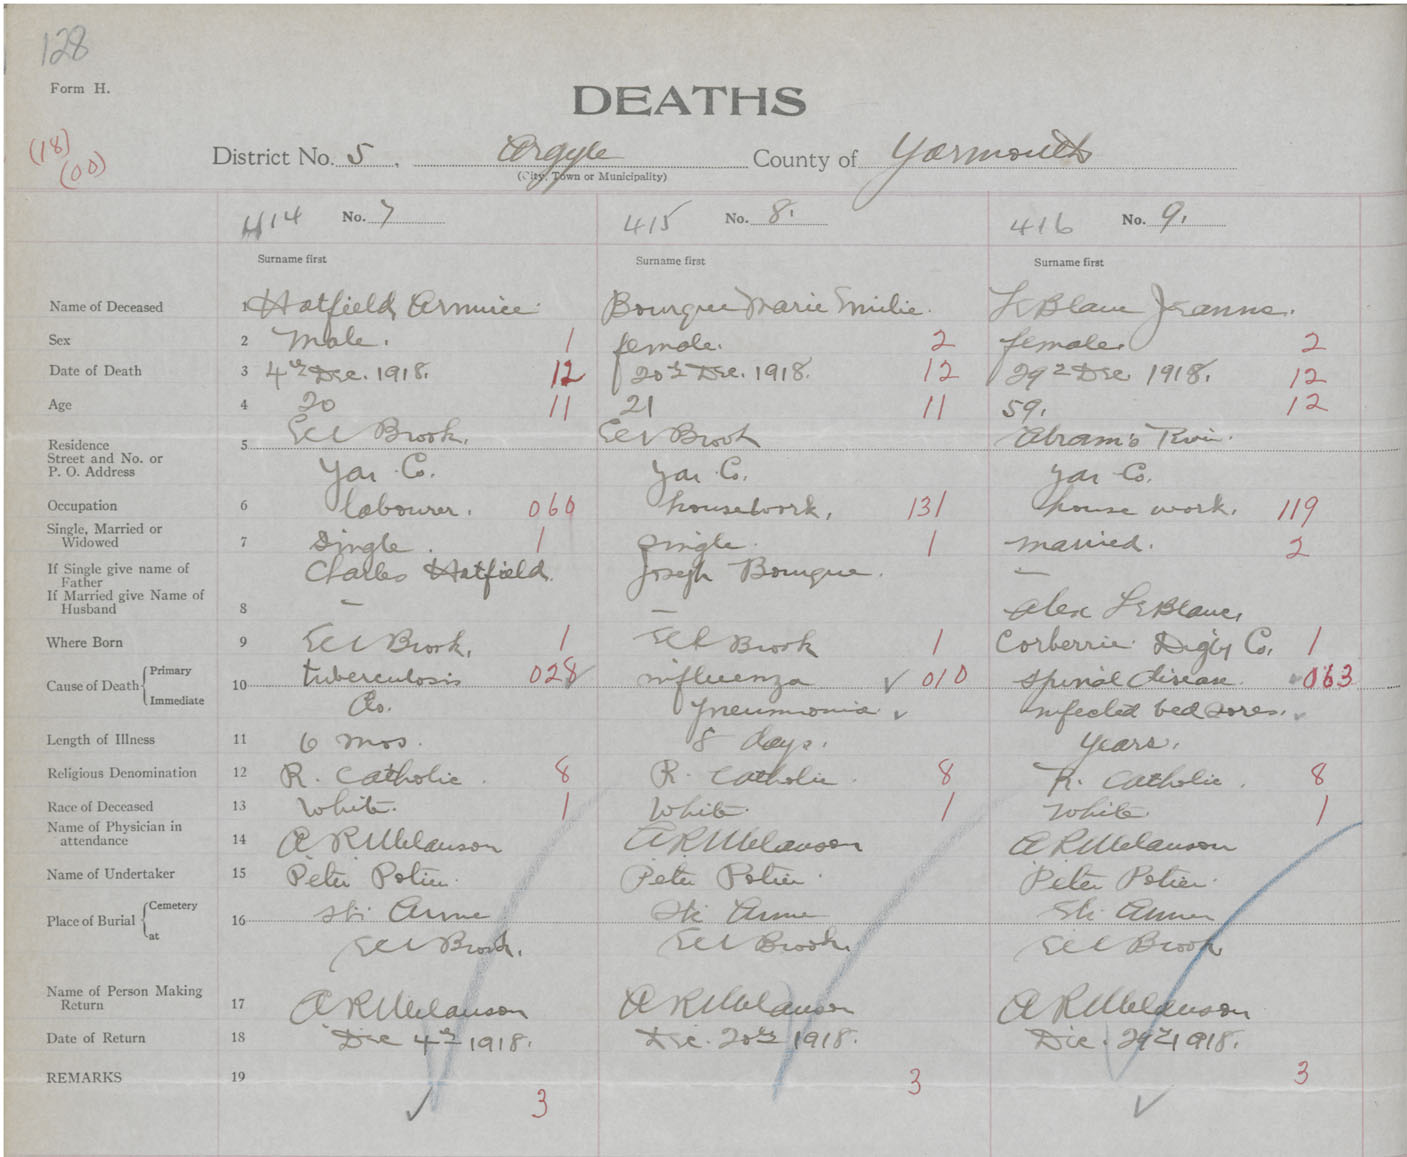 128
Form H.
DEATHS
(18)
(00)
District No. 5, Argyle County of Yarmouth
(City, Town or Municipality)
414 No. 7 415 No. 8. 416 No. 9.
Surname first Surname first Surname first
Name of Deceased 1 Hatfield, Bourque Marie Emilie. LeBlanc Jeanne.
Sex 2 Male. 1 female. 2 female. 2
Date of Death 3 4th Dec. 1918. 12 20th Dec. 1918. 12 29th Dec 1918. 12
Age 4 20 11 21 11 59. 12
Residence 5 Eel Brook, Eel Brook Abram's River.
Street and No. or
P. O. Address Yar. Co. Yar Co. Yar Co.
Occupation 6 labourer. 060 housework, 131 house work. 119
Single, Married or
Widowed 7 Single. 1 Single. 1 married. 2
If Single give name of
Father Charles Hatfield. Joseph Bourque. —
If Married give Name of
Husband 8 — — Alex LeBlanc,
Where Born 9 Eel Brook, 1 Eel Brook 1 Corberrie Digby Co, 1
Cause of Death Primary 10 tuberculosis 028 influenza 010 spinal disease. 063
Immediate Do. Pneumonia infected bed sores.
Length of Illness 11 6 mos. 8 days. years.
Religious Denomination 12 R. Catholic. 8 R. Catholic. 8 R. Catholic. 8
Race of Deceased 13 White. 1 White. 1 White. 1
Name of Physician in
attendance 14 A R Melanson A R Melanson A R Melanson
Name of Undertaker 15 Peter Potier. Peter Potier. Peter Potier.
Place of Burial Cemetery 16 Ste Anne Ste Anne Ste Anne
at Eel Brook. Eel Brook. Eel Brook
Name of Person Making
Return 17 A R Melanson A R Melanson A R Melanson
Date of Return 18 Dec 4th 1918. Dec. 20th 1918. Dec. 29th 1918.
REMARKS 19
3 3 3